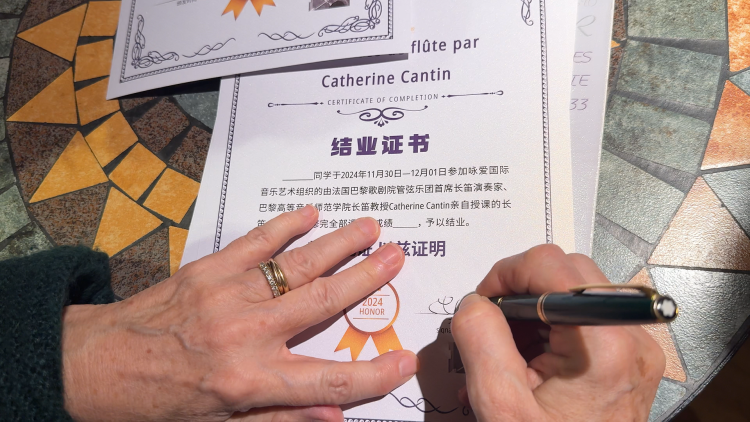 flûte par
Catherine Cantin
CERTIFICATE OF COMPLETION
结业证书
同学于2024年11月30日—12月01日参加咏爱国际
音乐艺术组织的由法国巴黎歌剧院管弦乐团首席长笛演奏家、
巴黎高等音乐师范学院长笛教授Catherine Cantin亲自授课的长
笛 完全部 成绩____，予以结业。
兹证明
2024
HONOR
R
ES
IE
33